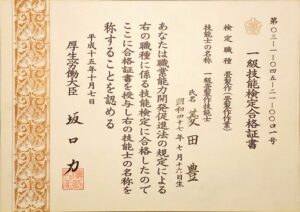 第〇三一一〇四五一二一一〇〇〇一号
一級技能検定合格証書
検定職種 畳製作(畳製作作業)
技能士の名称 一級畳製作技能士
氏名 田 豊
昭和四十七年七月十六日生
あなたは職業能力開発促進法の規定による
右の職種に係る技能検定に合格したので
ここに合格証書を授与し右の技能士の名称を
称することを認める
平成十五年十月七日
厚生労働大臣 坂口力